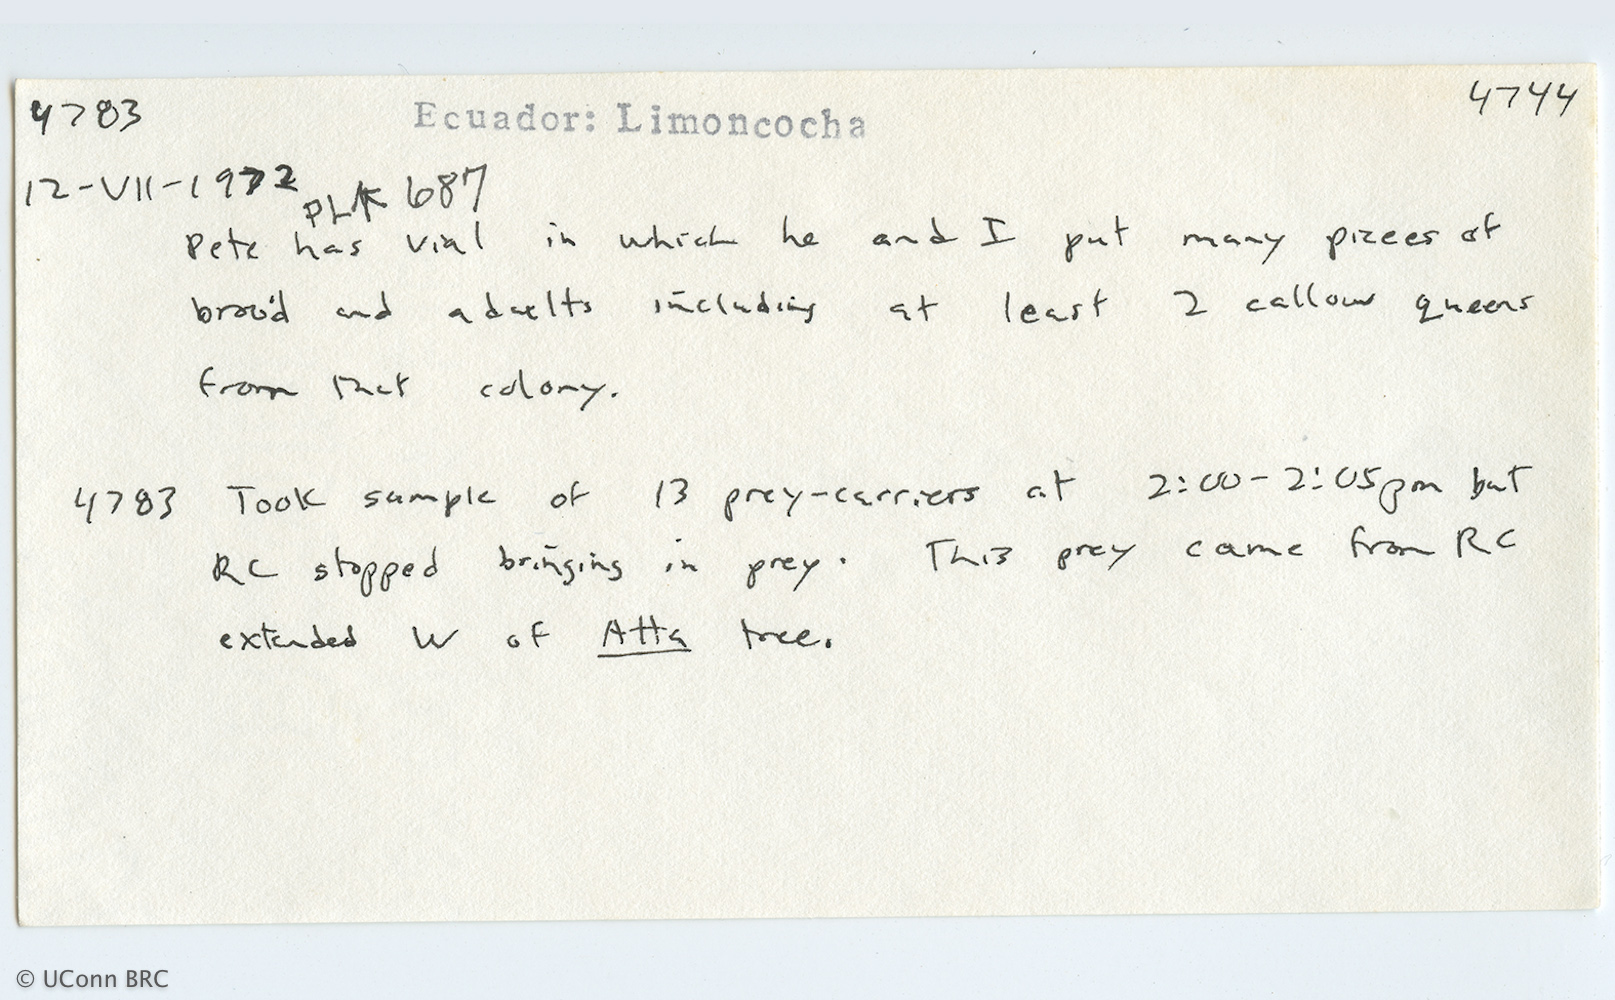 4783 Ecuador: Limoncocha 4744
12-VII-1972 PLK 687
Pete has vial in which he and I put many pieces of
brood and adults including at least 2 callow queens
from that colony.
4783 Took sample of 13 prey-carriers at 2:00-2:05pm but
RC stopped bringing in prey. This prey came from RC
extended W of Atta tree.
© UConn BRC